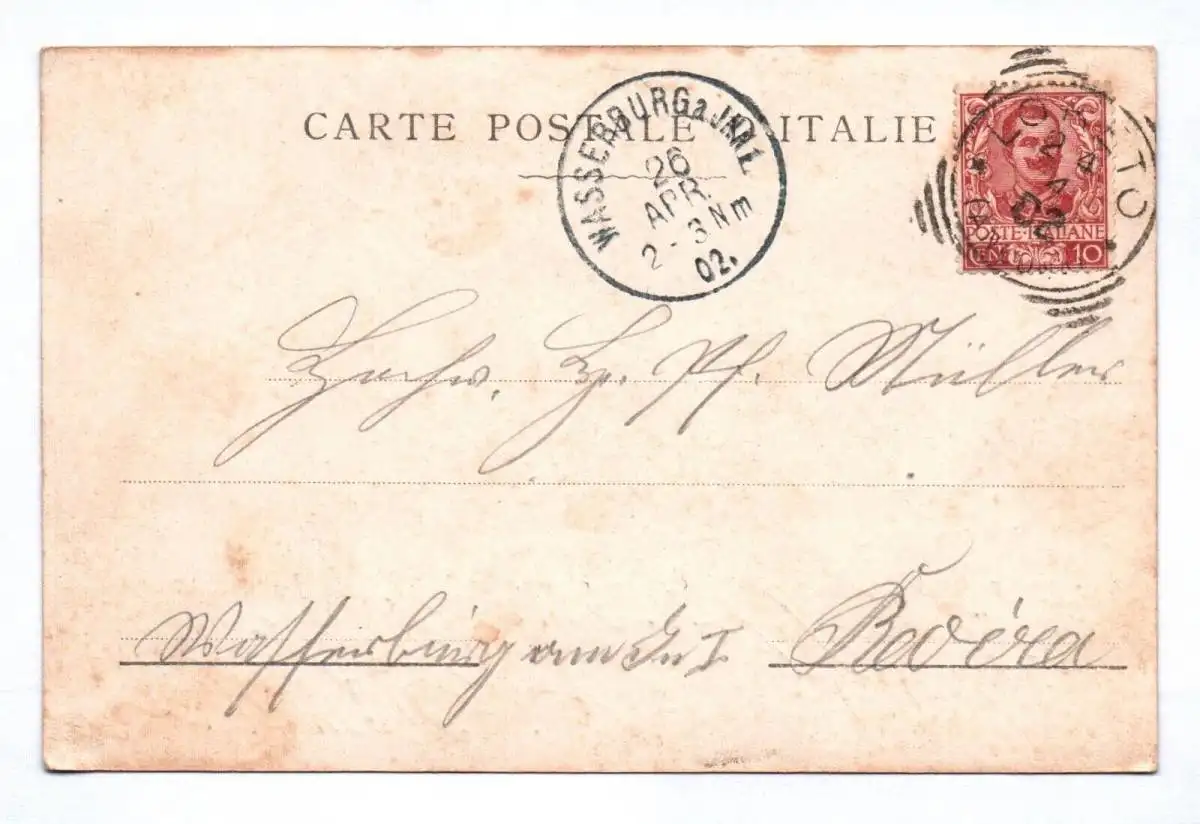 CARTE POSTALE ITALIE
WASSERBURG a. INN 1.
26
APR.
2-3 Nm
02.
LORETO
24
4
02
POSTE ITALIANE
CEN 10
Hochw. H. Pf. Müller
Wasserburg am Inn I